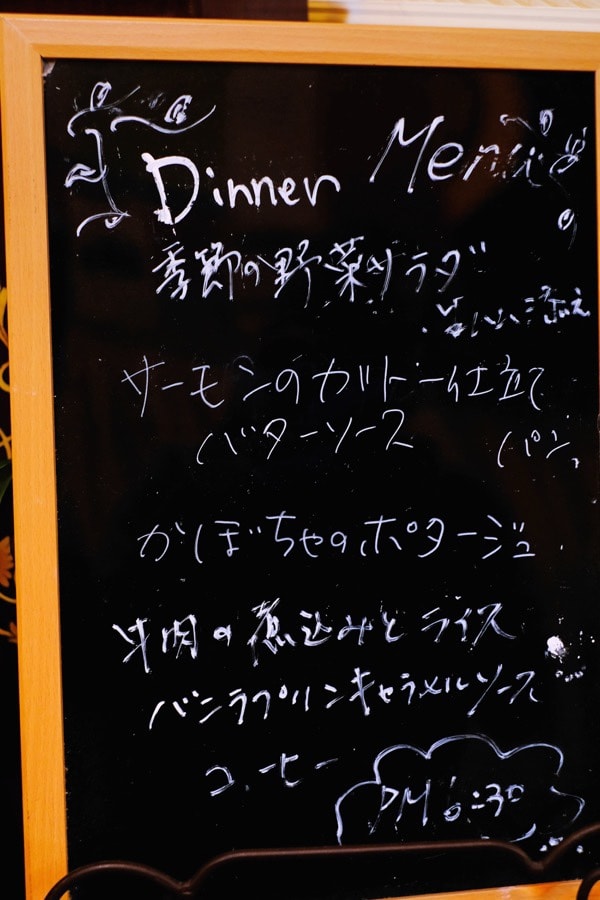 Dinner Menu
季節の野菜サラダ
添え
サーモンのガトー仕立て
バターソース パン
かぼちゃのポタージュ
牛肉の煮込みとライス
バニラプリンキャラメルソース
コーヒー
PM 6:30